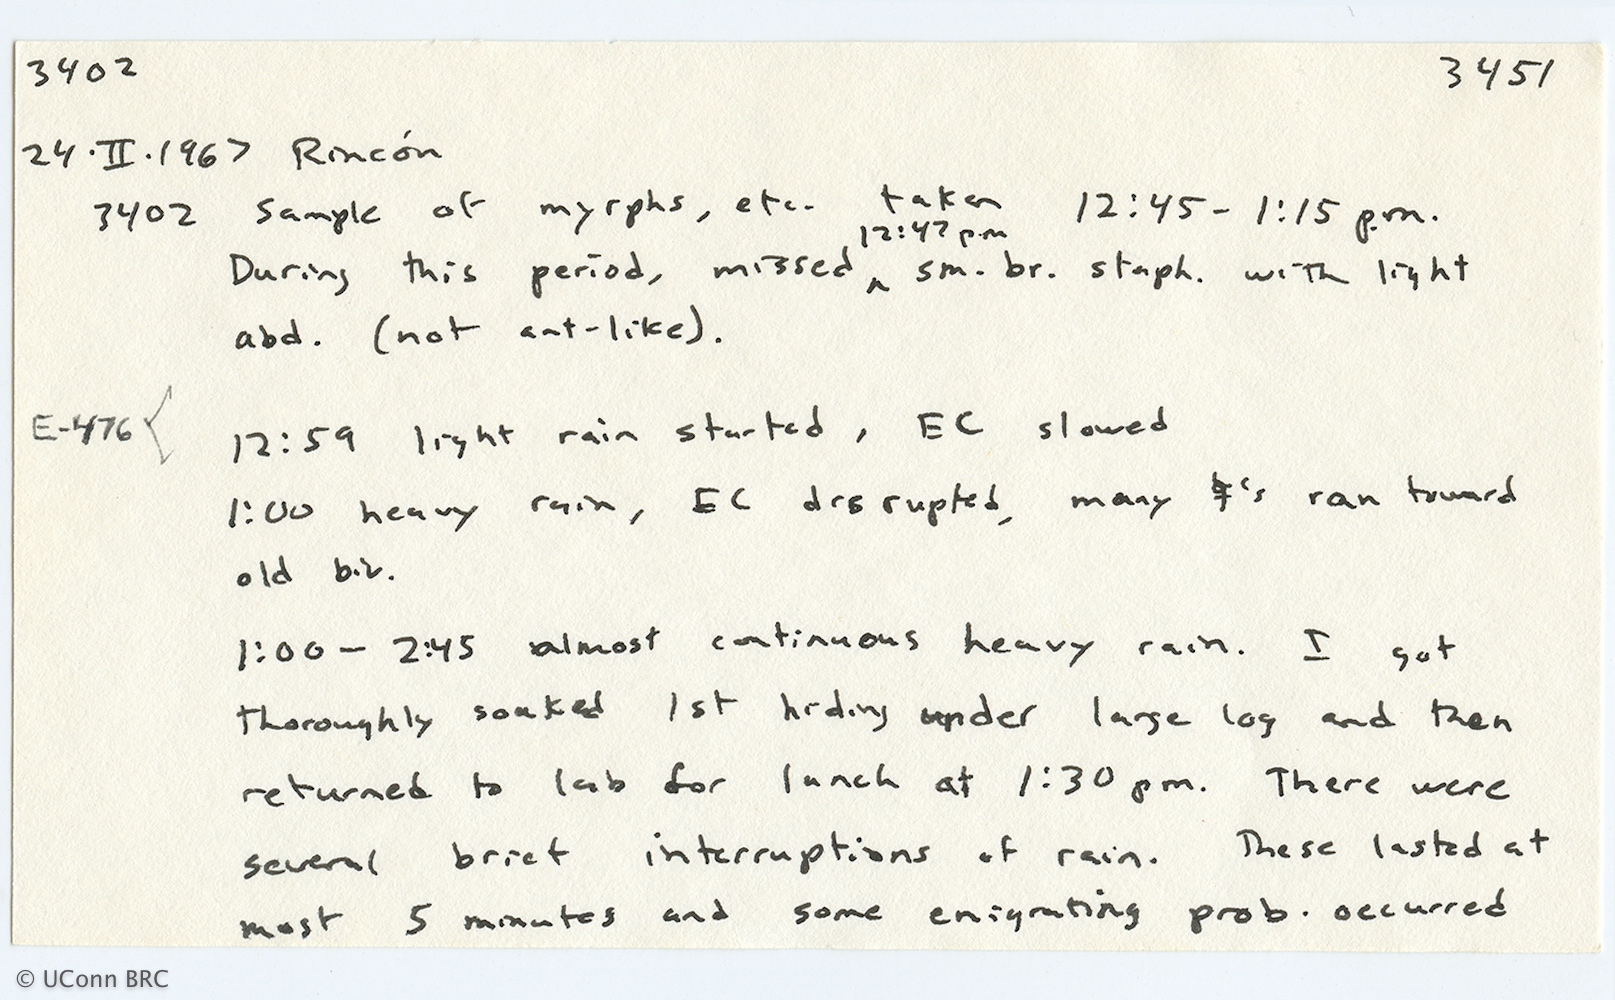 3402 3451
24·II·1967 Rincón
3402 Sample of myrphs, etc. taken 12:45-1:15 p.m.
12:47 p.m
During this period, missed ^ sm. br. staph. with light
abd. (not ant-like).
E-476 { 12:59 light rain started, EC slowed
1:00 heavy rain, EC disrupted, many ☿'s ran toward
old biv.
1:00 - 2:45 almost continuous heavy rain. I got
thoroughly soaked 1st hiding under large log and then
returned to lab for lunch at 1:30 pm. There were
several brief interruptions of rain. These lasted at
most 5 minutes and some emigrating prob. occurred
© UConn BRC